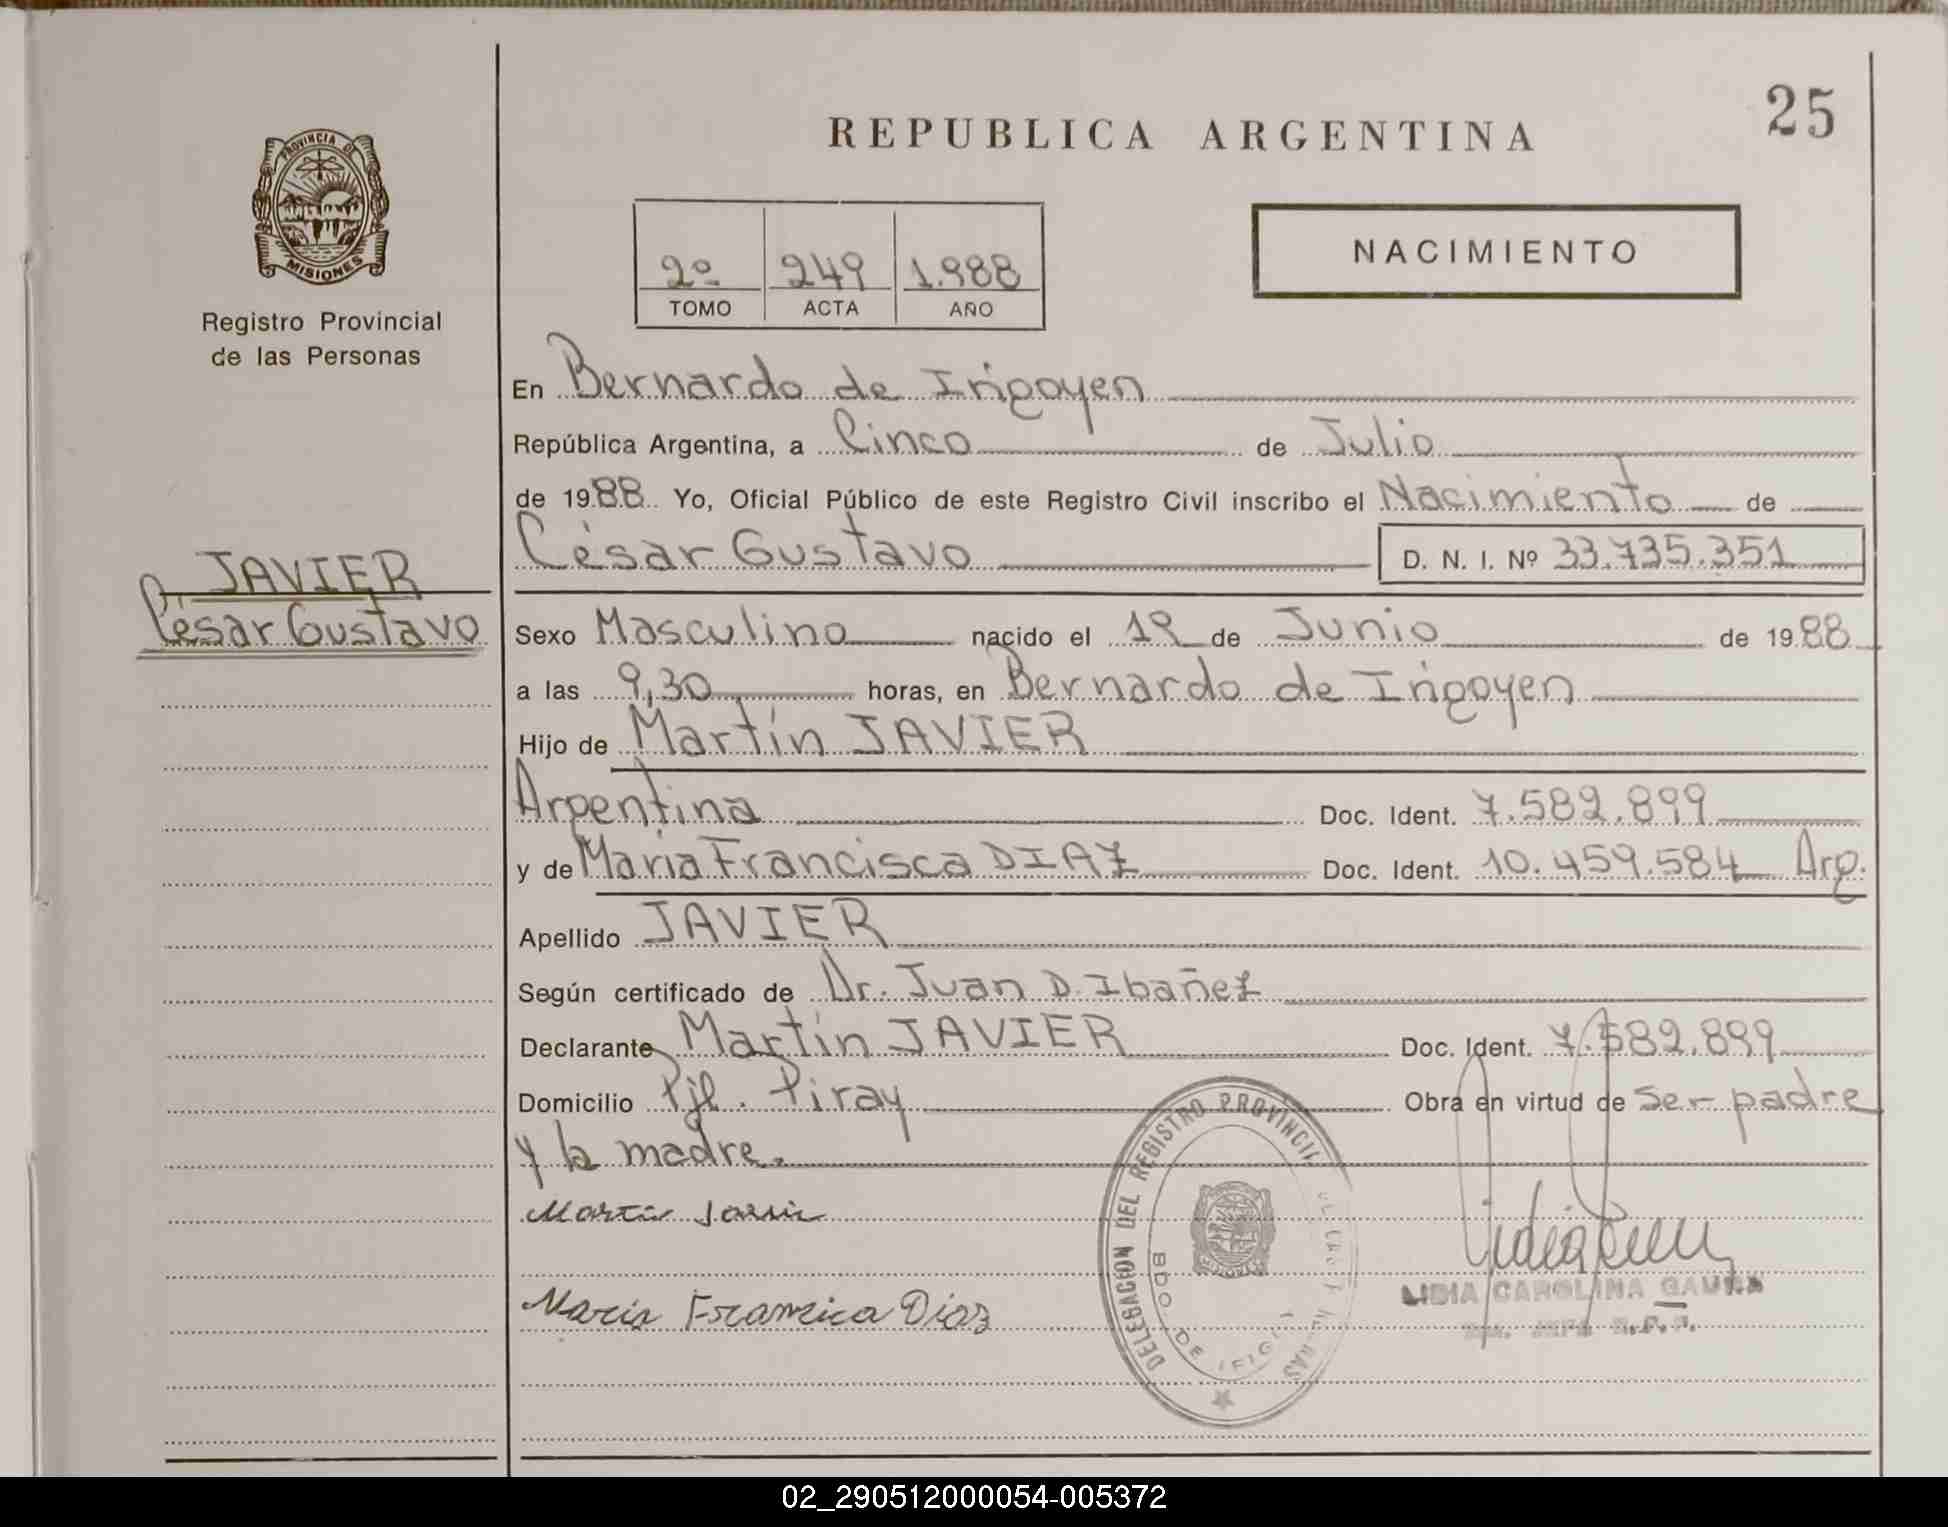 25
REPUBLICA ARGENTINA
PROVINCIA DE
MISIONES
Registro Provincial
de las Personas
2º 249 1.988
TOMO ACTA AÑO
NACIMIENTO
En Bernardo de Irigoyen
República Argentina, a Cinco de Julio
de 1988 Yo, Oficial Público de este Registro Civil inscribo el Nacimiento de
César Gustavo D. N. I. Nº 33.735.351
JAVIER
César Gustavo
Sexo Masculino nacido el 19 de Junio de 1988
a las 9,30 horas, en Bernardo de Irigoyen
Hijo de Martín JAVIER
Argentina Doc. Ident. 7.582.899
y de Maria Francisca DIAZ Doc. Ident. 10.459.584 Arg.
Apellido JAVIER
Según certificado de Dr. Juan D. Ibañez
Declarante Martín JAVIER Doc. Ident. 7.582.899
Domicilio Pje. Piray Obra en virtud de ser padre
y la madre.
DELEGACION DEL REGISTRO PROVINCIAL
BDO. DE
Maria Francisca Diaz
LIDIA CAROLINA
02_290512000054-005372